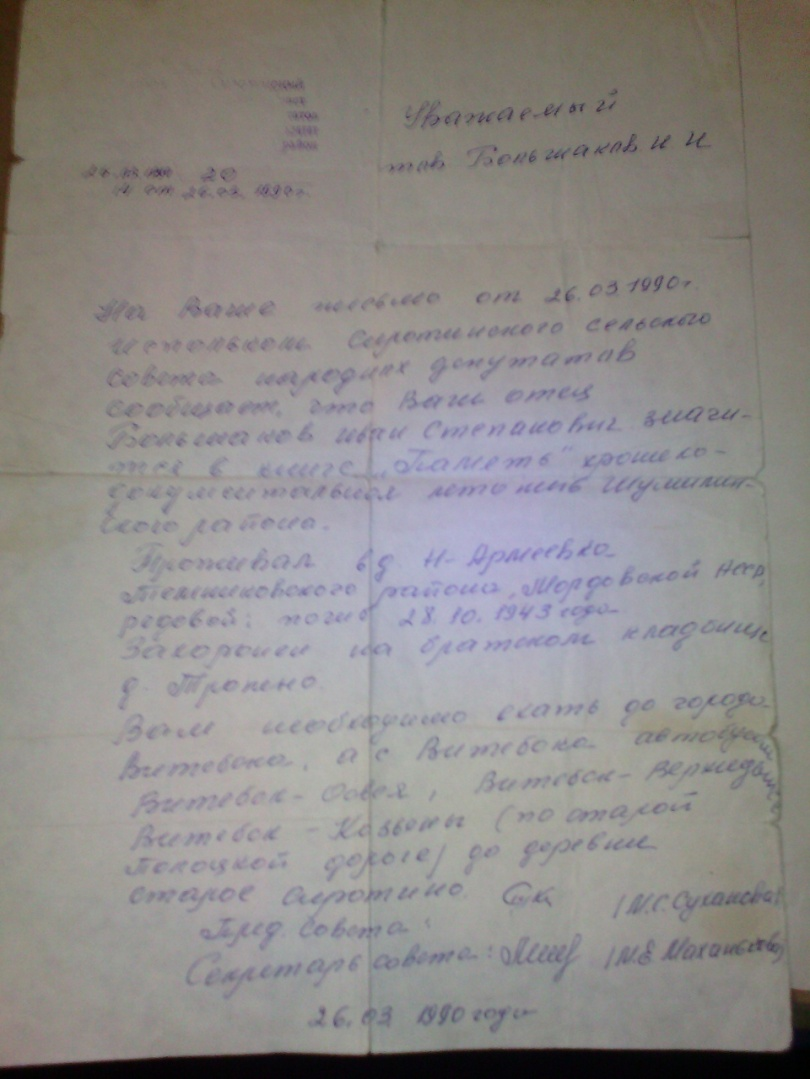 Уважаемый
тов Большаков И И
20
от 26.03. 1990г.
На Ваше письмо от 26.03.1990г.
исполком Сиротинского сельского
совета народных депутатов
сообщает, что Ваш отец
Большаков Иван Степанович значи-
тся в книге „Память" хронико-
документальной летописи Шумилин-
ского района.
Проживал в д. Н-Армеевка
Темниковского района, Мордовской АССР,
рядовой; погиб 28.10.1943 года
Захоронен на братском кладбище
д.
Вам необходимо ехать до города
Витебска, а с Витебска автобусом
Витебск - Освея, Витебск - Верхнедвинск
Витебск - Козьяны (по старой
Полоцкой дороге) до деревни
Старое Сиротино.
(М.С. Суханова)
Пред. Совета:
Секретарь совета: (М.Е.
26.03 1990 года